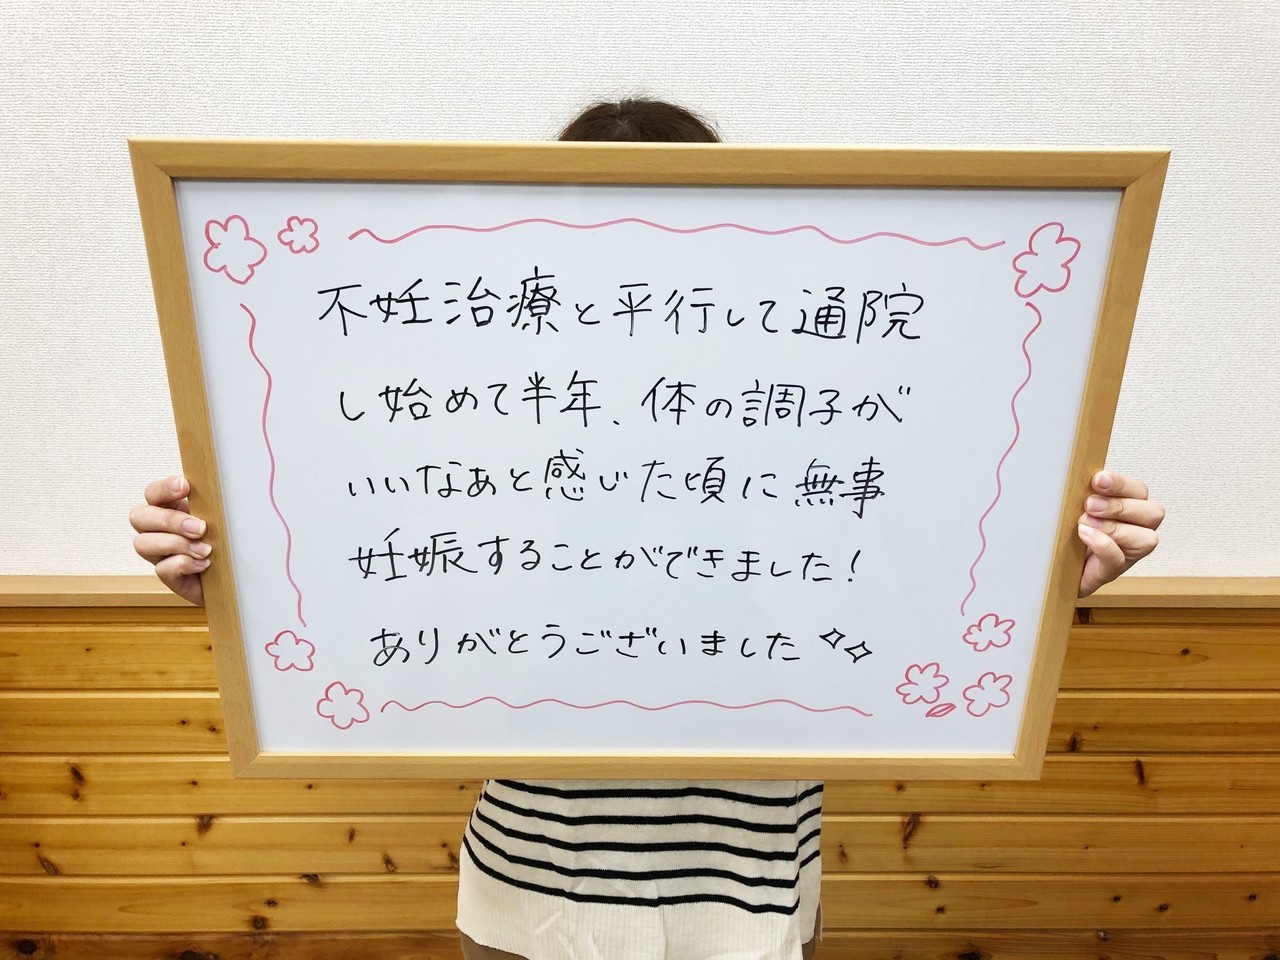 不妊治療と平行して通院
し始めて半年、体の調子が
いいなぁと感じた頃に無事
妊娠することができました!
ありがとうございました